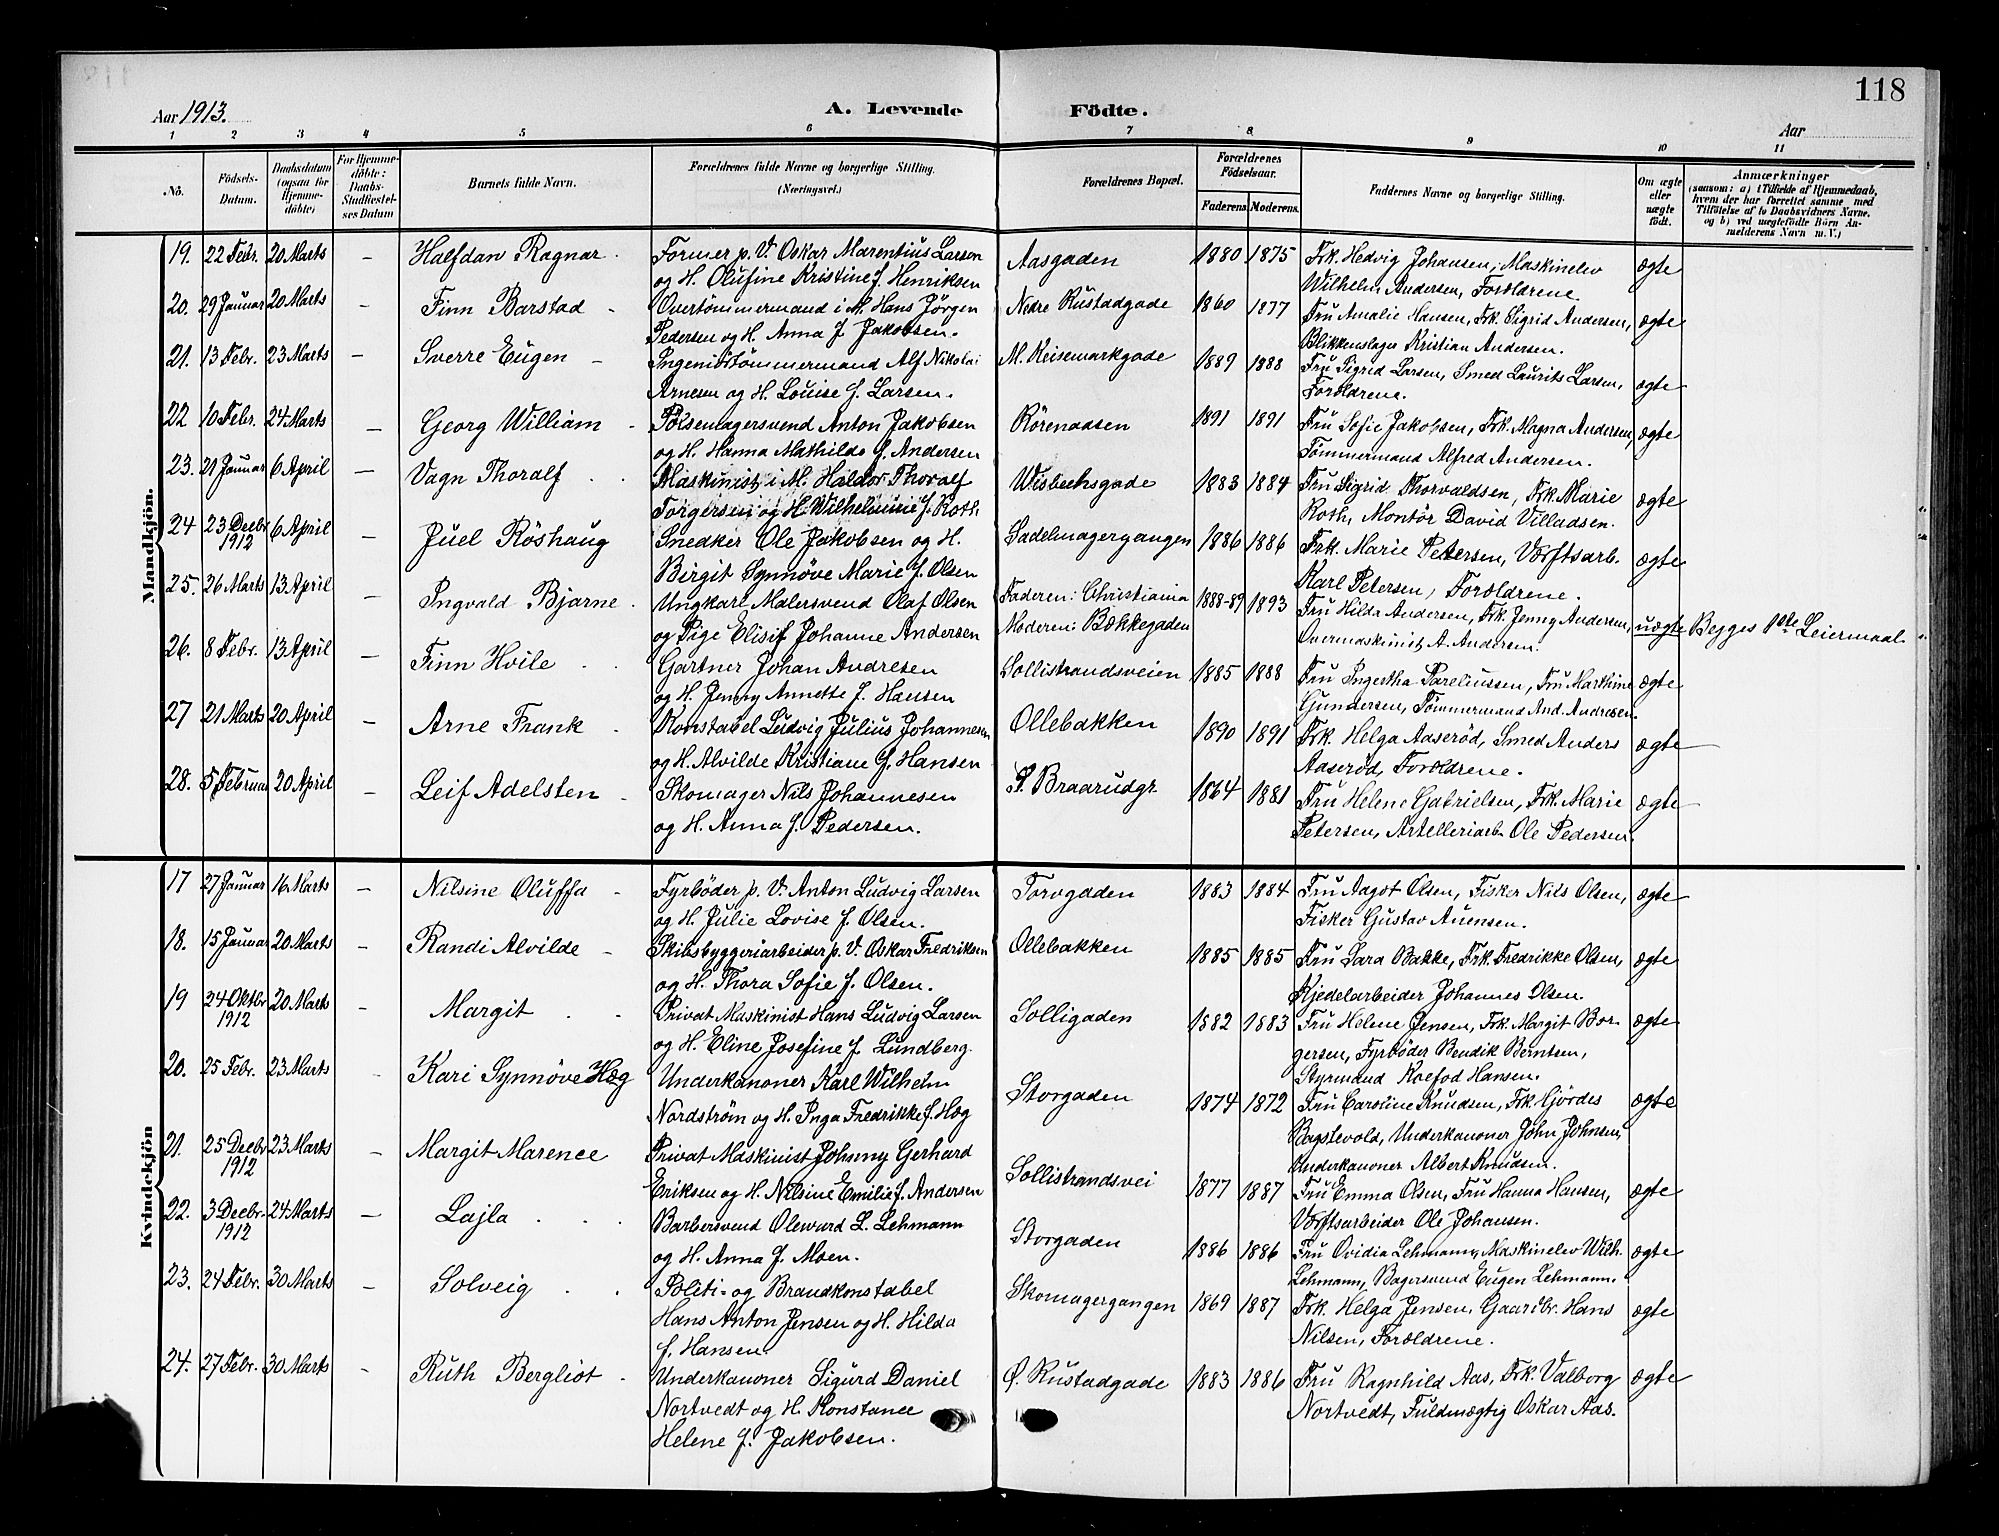 118
Aar 1913.
A. Levende Födte.
Aar
1 2 3 4 5 6 7 8 9 10 11
No.
Födsels-Datum.
Daabsdatum (ogsaa for Hjemme-döbte)
For Hjemme-döbte: Daabs-Stadfæstel-ses Datum
Barnets fulde Navn.
Forældrenes fulde Navne og borgerlige Stilling. (Næringsvei.)
Forældrenes Bopæl.
Forældrenes Födselsaar.
Faderens. Moderens.
Faddernes Navne og borgerlige Stilling.
Om ægte eller uægte födt.
Anmærkninger
(saasom: a) i Tilfælde af Hjemmedaab, hvem der har forrettet samme med Tilföielse af to Daabsvidners Navne. og b) ved uægtefödte Börn An-melderens Navn m. V.)
Mandkjön.
19. 22 Febr. 20 Marts – Halfdan Ragnar. Former p. V. Oskar Marentius Larsen Aasgaden 1880 1875 Frk. Hedvig Johansen, Maskinelev ægte
og H. Olufine Kristine f. Henriksen Wilhelm Andersen, Forældrene.
20. 29 Januar 20 Marts – Finn Barstad - Overtömmermand i M. Hans Jörgen Nedre Rustadgade 1860 1877 Fru Amalie Hansen, Frk. Sigrid Andersen, ægte
Pedersen og H. Anna f. Jakobsen. Blikkenslager Kristian Andersen.
21. 13 Febr. 23 Marts – Sverre Eugen - Ingeniörtömmermand Alf Nikolai M. Keisemarkgade 1889 1888 Fru Sigrid Larsen, Smed Laurits Larsen, ægte
Arnesen og H. Louise f. Larsen. Forældrene.
22 10 Febr. 24 Marts – Georg William - Pölsemagersvend Anton Jakobsen Rörenaasen 1891 1891 Fru Sofie Jakobsen, Frk. Magna Andersen, ægte
og H. Hanna Mathilde f. Andersen Tömmermand Alfred Andersen.
23. 21 Januar 6 April – Vagn Thoralf . . Maskinist i M. Haldor Thoralf Wisbechsgade 1883 1884 Fru Sigrid Thorvaldsen, Frk. Marie ægte
Torgersen og H. Wilhelmine f. Roth Roth, Montör David Villadsen.
24 23 Decbr 1912 6 April – Juel Röshaug Snedker Ole Jakobsen og H. Sadelmagergangen 1886 1886 Frk. Marie Petersen, Værftsarb. ægte
Birgit Synnöve Marie f. Olsen Karl Petersen, Forældrene.
25. 26 Marts 13 April – Ingvald Bjarne. Ungkarl Malersvend Olaf Olsen Faderen: Christiania 1888-89 1893 Fru Hilda Andersen, Frk. Jenny Andersen, uægte Begges 1ste Leiermaal.
og Pige Elisif Johanne Andersen Moderen: Bækkegaden Overmaskinist A. Andersen.
26. 8 Febr. 13 April – Finn Hvile . . Gartner Johan Andresen Sollistrandsveien 1885 1888 Fru Ingertha Pareliussen, Fru Marthine ægte
og H. Jenny Annette f. Hansen Gundersen, Tömmermand And. Andresen.
27 21 Marts 20 April – Arne Frank . Konstabel Ludvig Julius Johannesen Ollebakken 1890 1891 Frk. Helga Aaseröd, Smed Anders ægte
og H. Alvilde Kristiane f. Hansen Aaseröd, Forældrene.
28. 5 Februar 20 April – Leif Adelsten - Skomager Nils Johannesen Braarudgr. 1864 1881 Fru Helene Gabrielsen, Frk. Marie ægte
og H. Anna f. Pedersen. Petersen, Artilleriarb. Ole Pedersen.
Kvindekjön
17 27 Januar 16 Marts – Nilsine Oluffa - Fyrböder p. V. Anton Ludvig Larsen Torvgaden 1883 1884 Fru Aagot Olsen, Fisker Nils Olsen, ægte
og H. Julie Lovise f. Olsen. Fisker Gustav Auensen.
18. 15 Januar 20 Marts – Randi Alvilde - Skibsbyggeriarbeider p. V. Oskar Fredriksen Ollebakken 1885 1885 Fru Sara Bakke, Frk. Fredrikke Olsen, ægte
og H. Thora Sofie f. Olsen. Kjedelarbeider Johannes Olsen.
19 24 Oktbr 1912 20 Marts – Margit . . Privat Maskinist Hans Ludvig Larsen Solligaden 1882 1883 Fru Helene Jensen, Frk. Margit Bor- ægte
og H. Eline Josefine f. Lundberg. gersen, Fyrböder Bendik Berntsen,
Styrmand Koefod Hansen.
20. 25 Febr. 23 Marts – Kari Synnöve Hæg Underkanoner Karl Wilhelm Storgaden 1874 1872 Fru Caroline Knudsen, Frk. Hjördes ægte
Nordström og H. Inga Fredrikke f. Hæg Bagstevold, Underkanoner John Johnsen,
Underkanoner Albert Knudsen.
21. 25 Decbr 1912 23 Marts – Margit Marence Privat Maskinist Johnny Gerhard Sollistrandsvei 1877 1887 Fru Emma Olsen, Fru Hanna Hansen, ægte
Eriksen og H. Nilsine Emilie f. Andersen Værftsarbeider Ole Johansen.
22. 3 Decbr. 1912 24 Marts – Lajla . . . Barbersvend Olewurd L. Lehmann Storgaden 1886 1886 Fru Ovidia Lehmann, Maskinelev Wilh. ægte
og H. Anna f. Moen. Lehmann, Bagersvend Eugen Lehmann.
23. 24 Febr. 30 Marts – Solveig . . Politi- og Brandkonstabel Skomagergangen 1869 1887 Frk. Helga Jensen, Gaardbr. Hans ægte
Hans Anton Jensen og H. Hilda Nilsen, Forældrene.
f. Hansen.
24. 27 Febr. 30 Marts – Ruth Bergliot - Underkanoner Sigurd Daniel Ø. Rustadgade 1883 1886 Fru Ragnhild Aas, Frk. Valborg ægte
Nortvedt og H. Konstance Nortvedt, Fuldmægtig Oskar Aas.
Helene f. Jakobsen.